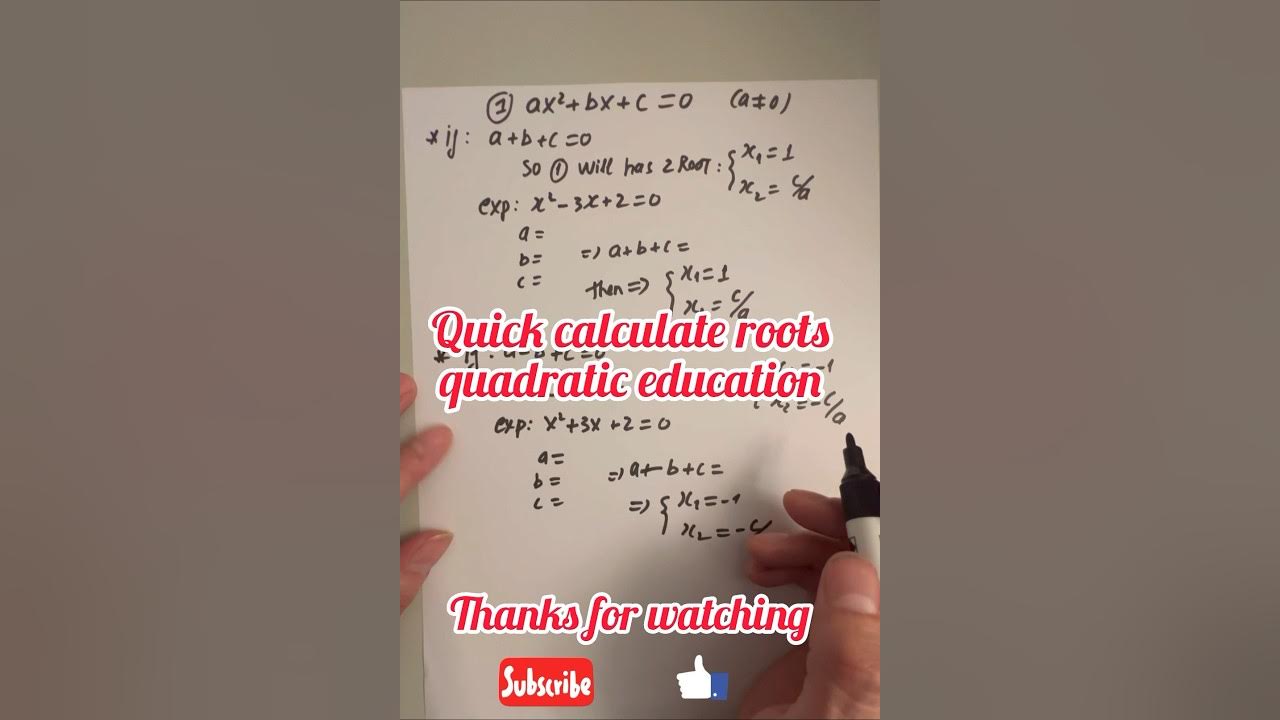 ① ax²+bx+c=0 (a≠0)
* if: a+b+c=0
So ① will has 2 Root: { x₁=1
x₂= c/a
exp: x²-3x+2=0
a=
b= => a+b+c=
c=
then => { x₁=1
x₂ = c/a
Quick calculate roots
* if: a-b+c=0
x₁=-1
quadratic education
x₂=-c/a
exp: x²+3x+2=0
a=
b= => a-b+c=
c= => { x₁=-1
x₂=-c/
Thanks for watching
Subscribe